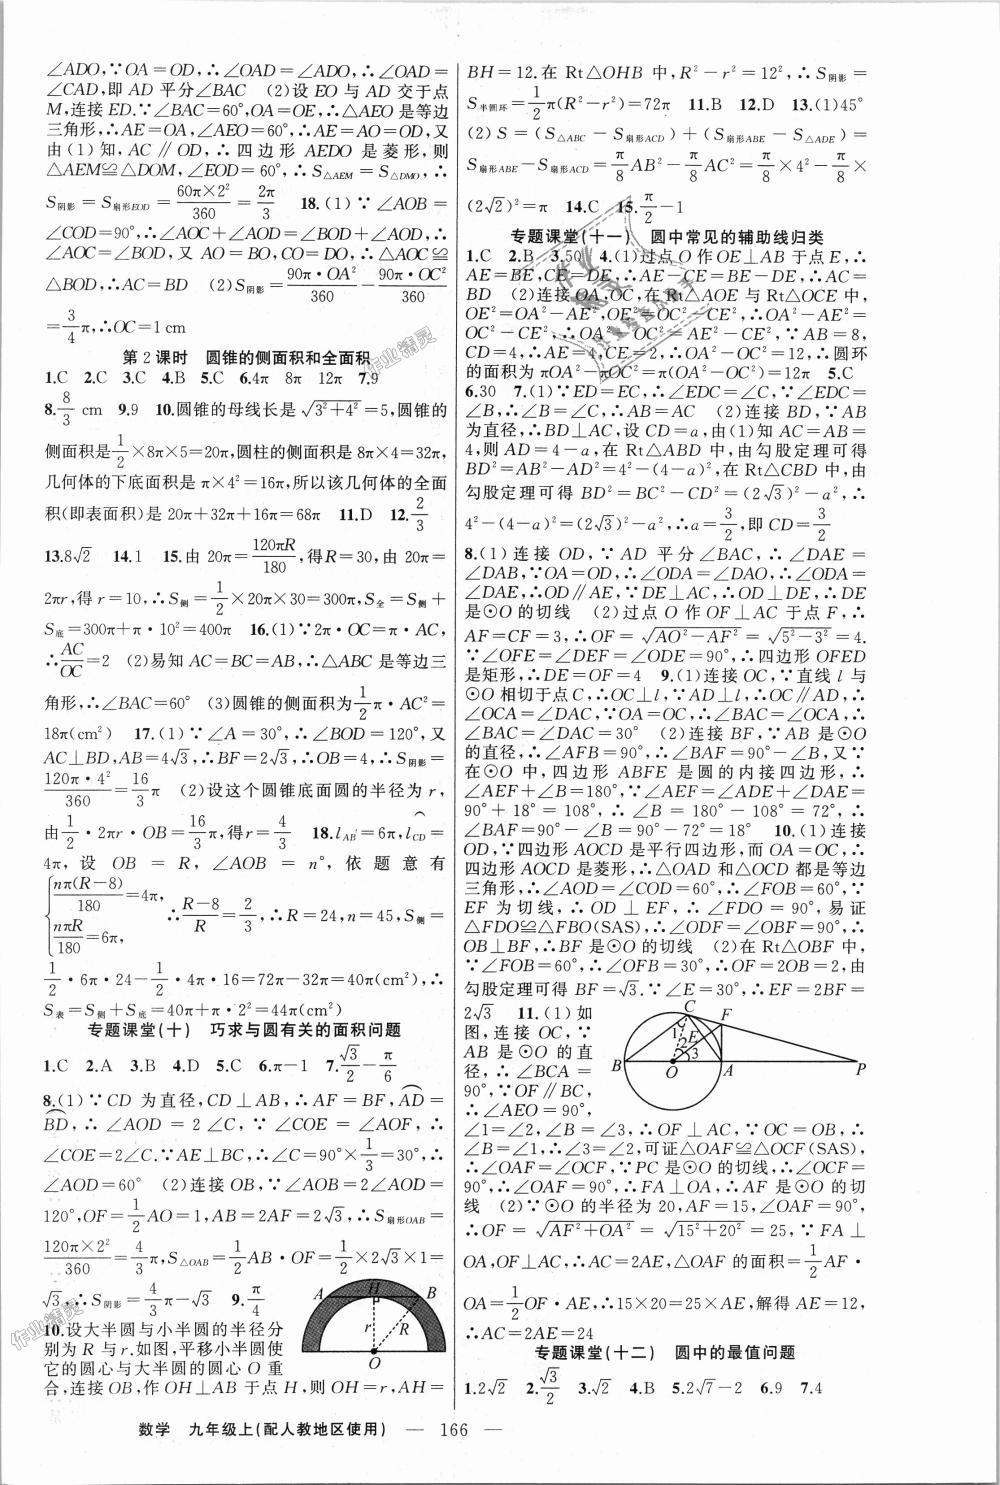 ∠ADO,∵OA=OD,∴∠OAD=∠ADO,∴∠OAD=
∠CAD,即 AD 平分∠BAC　(2)设 EO 与 AD 交于点
M,连接 ED.∵∠BAC=60°,OA=OE,∴△AEO 是等边
三角形,∴AE=OA,∠AEO=60°,∴AE=AO=OD,又
由(1)知,AC∥OD,∴四边形 AEDO 是菱形,则
△AEM≌△DOM,∠EOD=60°,∴S△AEM=S△DMO,∴
S阴影=S扇形EOD=60π×2²/360=2π/3　18.(1)∵∠AOB=
∠COD=90°,∴∠AOC+∠AOD=∠BOD+∠AOD,∴
∠AOC=∠BOD,又 AO=BO,CO=DO,∴△AOC≌
△BOD,∴AC=BD　(2)S阴影=90π·OA²/360-90π·OC²/360
=3/4π,∴OC=1 cm
第 2 课时　圆锥的侧面积和全面积
1.C　2.C　3.C　4.B　5.C　6.4π　8π　12π　7.9
8.8/3 cm　9.9　10.圆锥的母线长是√(3²+4²)=5,圆锥的
侧面积是1/2×8π×5=20π,圆柱的侧面积是 8π×4=32π,
几何体的下底面积是 π×4²=16π,所以该几何体的全面
积(即表面积)是 20π+32π+16π=68π　11.D　12.2/3
13.8√2　14.1　15.由 20π=120πR/180,得R=30,由 20π=
2πr,得 r=10,∴S侧=1/2×20π×30=300π,S全=S侧+
S底=300π+π·10²=400π　16.(1)∵2π·OC=π·AC,
∴AC/OC=2　(2)易知 AC=BC=AB,∴△ABC 是等边三
角形,∴∠BAC=60°　(3)圆锥的侧面积为1/2π·AC²=
18π(cm²)　17.(1)∵∠A=30°,∴∠BOD=120°,又
AC⊥BD,AB=4√3,∴BF=2√3,∴OB=4,∴S阴影=
120π·4²/360=16/3π　(2)设这个圆锥底面圆的半径为 r,
由1/2·2πr·OB=16/3π,得r=4/3　18.lAB=6π,lCD=
4π,设 OB=R,∠AOB=n°,依题意有
{nπ(R-8)/180=4π, nπR/180=6π,　∴(R-8)/R=2/3,∴R=24,n=45,S侧=
1/2·6π·24-1/2·4π·16=72π-32π=40π(cm²),∴
S表=S侧+S底=40π+π·2²=44π(cm²)
专题课堂(十)　巧求与圆有关的面积问题
1.C　2.A　3.B　4.D　5.C　6.π-1　7.√3/2-π/6
8.(1)∵CD 为直径,CD⊥AB,∴AF=BF,AD=
BD,∴∠AOD=2∠C,∵∠COE=∠AOF,∴
∠COE=2∠C.∵AE⊥BC,∴∠C=90°×1/3=30°,∴
∠AOD=60°　(2)连接 OB,∵∠AOB=2∠AOD=
120°,OF=1/2AO=1,AB=2AF=2√3,∴S扇形OAB=
120π×2²/360=4/3π,S△OAB=1/2AB·OF=1/2×2√3×1=
√3,∴S阴影=4/3π-√3　9.π/4
A H B r R O
10.设大半圆与小半圆的半径分
别为 R 与 r.如图,平移小半圆使
它的圆心与大半圆的圆心 O 重
合,连接 OB,作 OH⊥AB 于点 H,则 OH=r,AH=
BH=12.在 Rt△OHB 中,R²-r²=12²,∴S阴影=
S半圆环=1/2π(R²-r²)=72π　11.B　12.D　13.(1)45°
(2)S=(S△ABC-S扇形ACD)+(S扇形ABE-S△ADE)=
S扇形ABE-S扇形ACD=π/8AB²-π/8AC²=π/8×4²-π/8×
(2√2)²=π　14.C　15.π/2-1
专题课堂(十一)　圆中常见的辅助线归类
1.C　2.B　3.50　4.(1)过点 O 作 OE⊥AB 于点 E,∴
AE=BE,CE=DE,∴AE-CE=BE-DE,∴AC=
BD　(2)连接 OA,OC,在 Rt△AOE 与 Rt△OCE 中,
OE²=OA²-AE²,OE²=OC²-CE²,∴OA²-AE²=
OC²-CE²,∴OA²-OC²=AE²-CE²,∵AB=8,
CD=4,∴AE=4,CE=2,∴OA²-OC²=12,∴圆环
的面积为 πOA²-πOC²=π(OA²-OC²)=12π　5.C
6.30　7.(1)∵ED=EC,∴∠EDC=∠C,∵∠EDC=
∠B,∴∠B=∠C,∴AB=AC　(2)连接 BD,∵AB
为直径,∴BD⊥AC,设 CD=a,由(1)知 AC=AB=
4,则 AD=4-a,在 Rt△ABD 中,由勾股定理可得
BD²=AB²-AD²=4²-(4-a)².在 Rt△CBD 中,由
勾股定理可得 BD²=BC²-CD²=(2√3)²-a²,∴
4²-(4-a)²=(2√3)²-a²,∴a=3/2,即 CD=3/2
8.(1)连接 OD,∵AD 平分∠BAC,∴∠DAE=
∠DAB,∵OA=OD,∴∠ODA=∠DAO,∴∠ODA=
∠DAE,∴OD∥AE,∵DE⊥AC,∴OD⊥DE,∴DE
是⊙O 的切线　(2)过点 O 作 OF⊥AC 于点 F,∴
AF=CF=3,∴OF=√(AO²-AF²)=√(5²-3²)=4.
∵∠OFE=∠DEF=∠ODE=90°,∴四边形 OFED
是矩形,∴DE=OF=4　9.(1)连接 OC,∵直线 l 与
⊙O 相切于点 C,∴OC⊥l,∵AD⊥l,∴OC∥AD,∴
∠OCA=∠DAC,∵OA=OC,∴∠BAC=∠OCA,∴
∠BAC=∠DAC=30°　(2)连接 BF,∵AB 是⊙O
的直径,∴∠AFB=90°,∴∠BAF=90°-∠B,又∵
在⊙O 中,四边形 ABFE 是圆的内接四边形,∴
∠AEF+∠B=180°,∵∠AEF=∠ADE+∠DAE=
90°+18°=108°,∴∠B=180°-108°=72°,∴
∠BAF=90°-∠B=90°-72°=18°　10.(1)连接
OD,∵四边形 AOCD 是平行四边形,而 OA=OC,∴
四边形 AOCD 是菱形,∴△OAD 和△OCD 都是等边
三角形,∴∠AOD=∠COD=60°,∴∠FOB=60°,∵
EF 为切线,∴OD⊥EF,∴∠FDO=90°,易证
△FDO≌△FBO(SAS),∴∠ODF=∠OBF=90°,∴
OB⊥BF,∴BF 是⊙O 的切线　(2)在 Rt△OBF 中,
∵∠FOB=60°,∴∠OFB=30°,∴OF=2OB=2,由
勾股定理可得 BF=√3.∵∠E=30°,∴EF=2BF=
2√3　11.(1)如
图,连接 OC,∵
AB 是⊙O 的直
径,∴∠BCA=
90°,∵OF∥BC,
∴∠AEO=90°,
C F 1 2 E 3 B O A P
∠1=∠2,∠B=∠3,∴OF⊥AC,∵OC=OB,∴
∠B=∠1,∴∠3=∠2,可证△OAF≌△OCF(SAS),
∴∠OAF=∠OCF,∵PC 是⊙O 的切线,∴∠OCF=
90°,∴∠OAF=90°,∴FA⊥OA,∴AF 是⊙O 的切
线　(2)∵⊙O 的半径为 20,AF=15,∠OAF=90°,
∴OF=√(AF²+OA²)=√(15²+20²)=25,∵FA⊥
OA,OF⊥AC,∴AC=2AE,△OAF 的面积=1/2AF·
OA=1/2OF·AE,∴15×20=25×AE,解得 AE=12,
∴AC=2AE=24
专题课堂(十二)　圆中的最值问题
1.2√2　2.√3/2　3.√2　4.B　5.2√7-2　6.9　7.4
数学　九年级上(配人教地区使用)　— 166 —
作业精灵
作业精灵